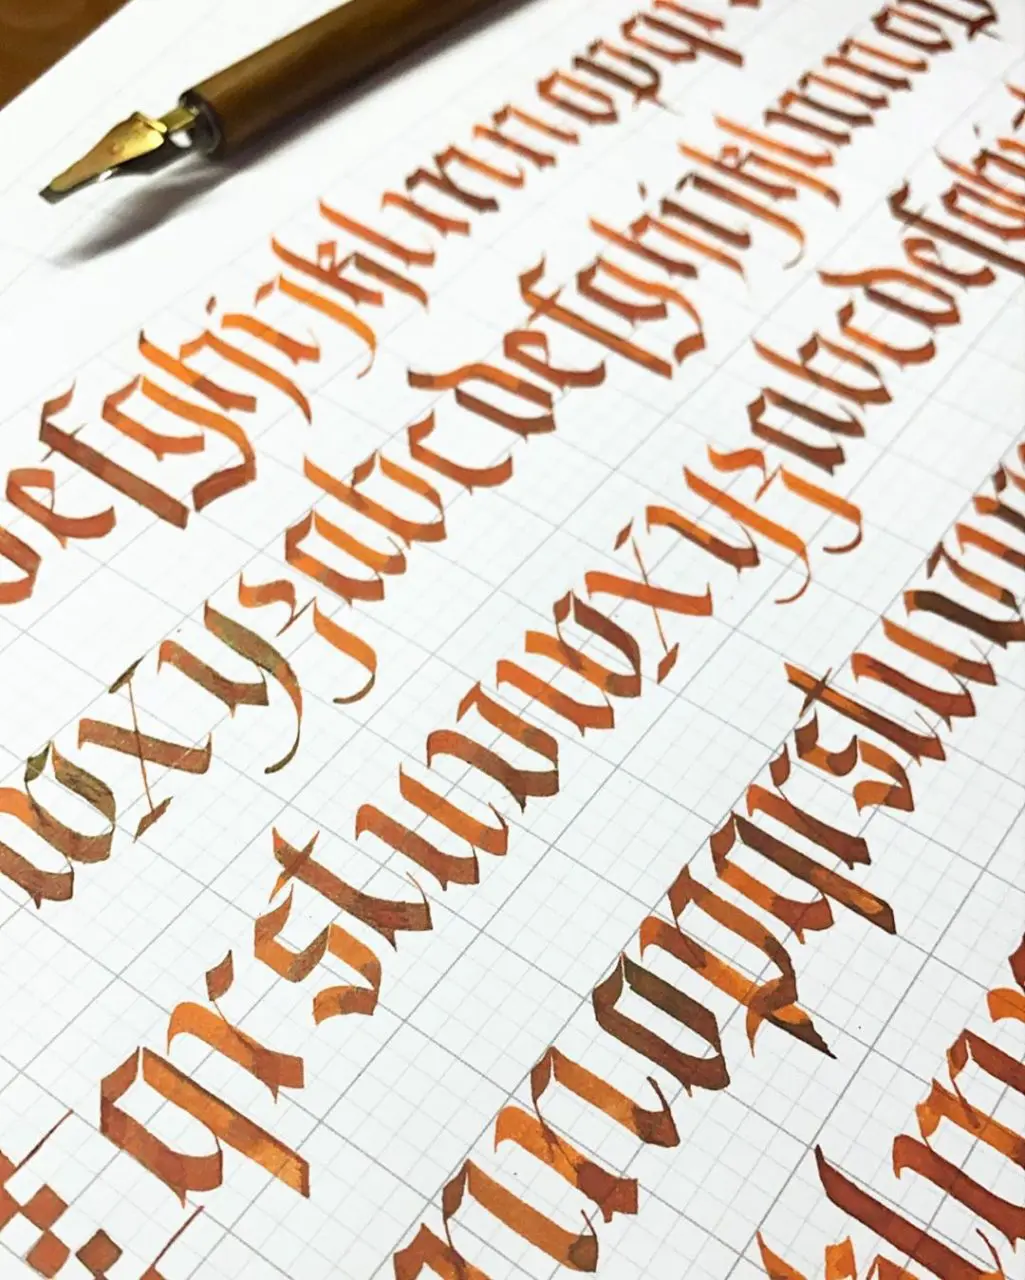 efghijklmnopqr
wxyzabcdefghijklmnop
qrstuvwxyzabcdefghi
mnopqrstuvw